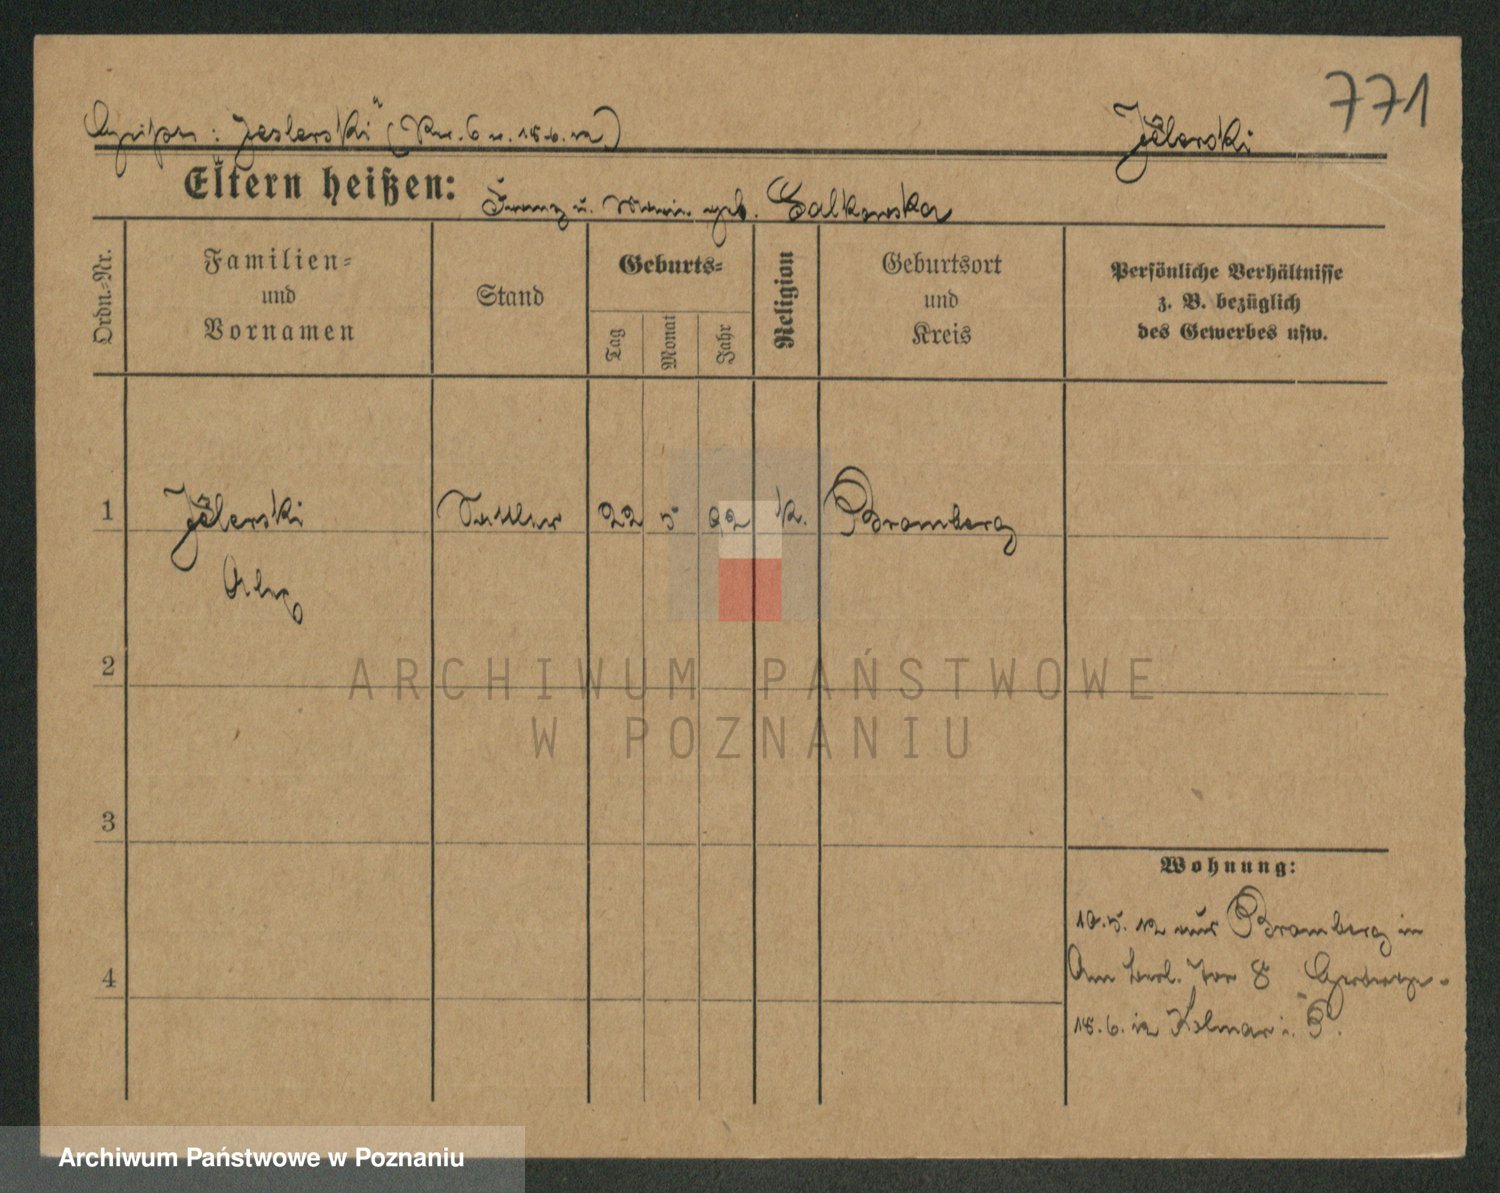 771
: Jeslerski" (Kr. 6 v. 15.6.12)
Jělerski
Eltern heißen: Franz u. Maria geb. Salkowska
Ordn.=Nr.
Familien=
und
Vornamen
Stand
Geburts=
Tag
Monat
Jahr
Religion
Geburtsort
und
Kreis
Persönliche Verhältnisse
z. B. bezüglich
des Gewerbes usw.
1 Jělerski Sattler 22 5 92 k. Bromberg
2
3
4
Wohnung:
10.5.12 aus Bromberg in
Am berl. Tor 8
15.6.12 Kolmar i. P.
ARCHIWUM PAŃSTWOWE
W POZNANIU
Archiwum Państwowe w Poznaniu